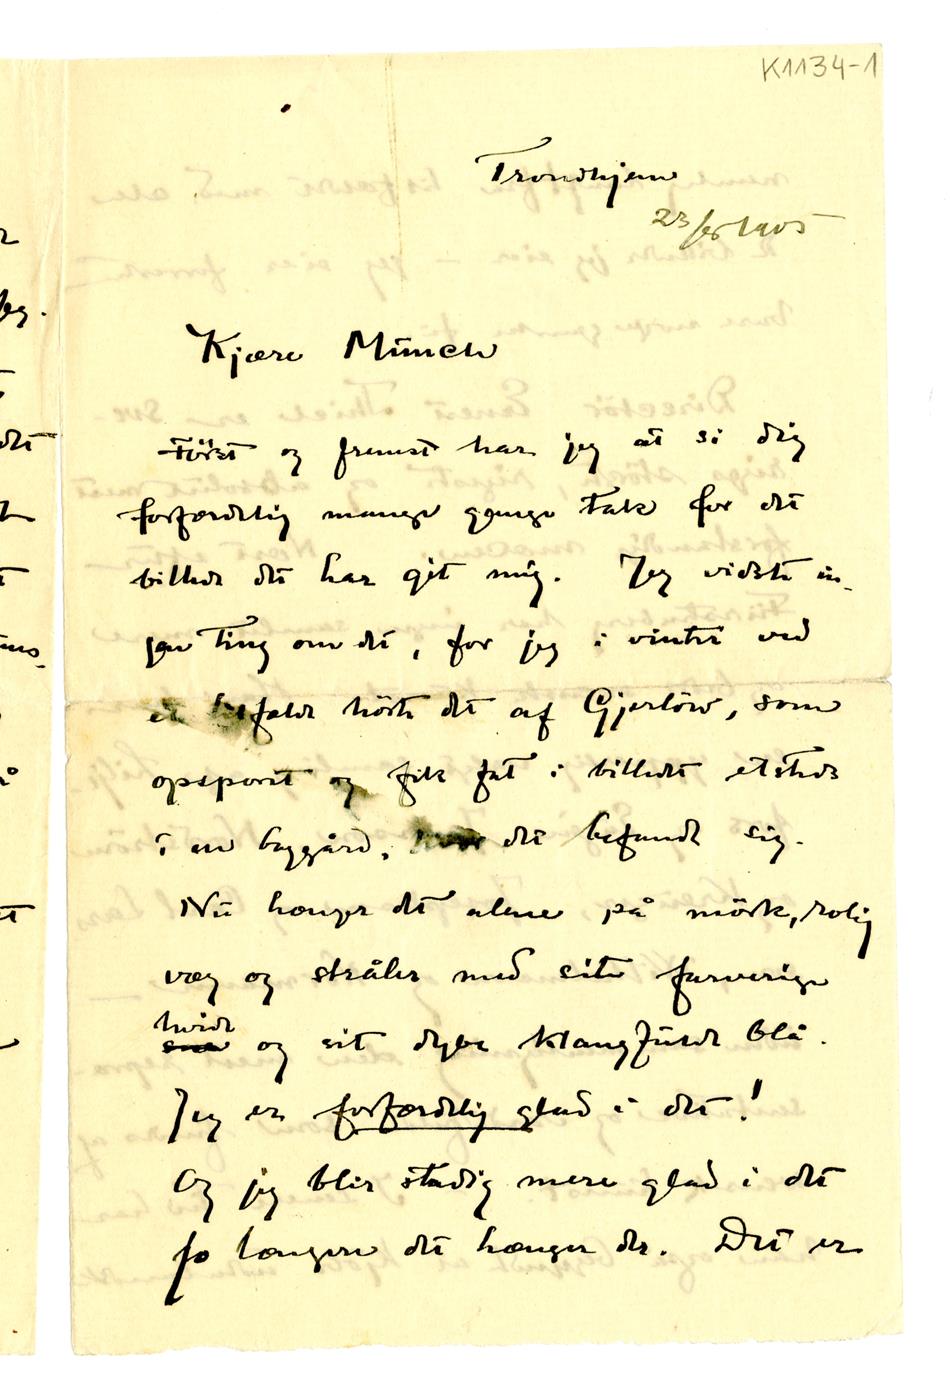 K1134-1
Trondhjem
23/feb 1905
Kjære Münch
Først og fremst har jeg at si dig
forfærdelig mange gange tak for det
billede du har git mig. Jeg vidste in-
jen ting om det, før jeg i vinter ved
et tilfælde hørte det af Gjerløw, som
opsporet og fik fat i billedet etsteds
i en baggård, hvor det befandt sig.
Nu hænger det alene på mörk, rolig
væg og stråler med sit farverige
hvide
og sit dybe klangfulde blå.
Jeg er forfærdelig glad i det!
Og jeg blir stadig mere glad i det
jo længere det hænger der. Det er